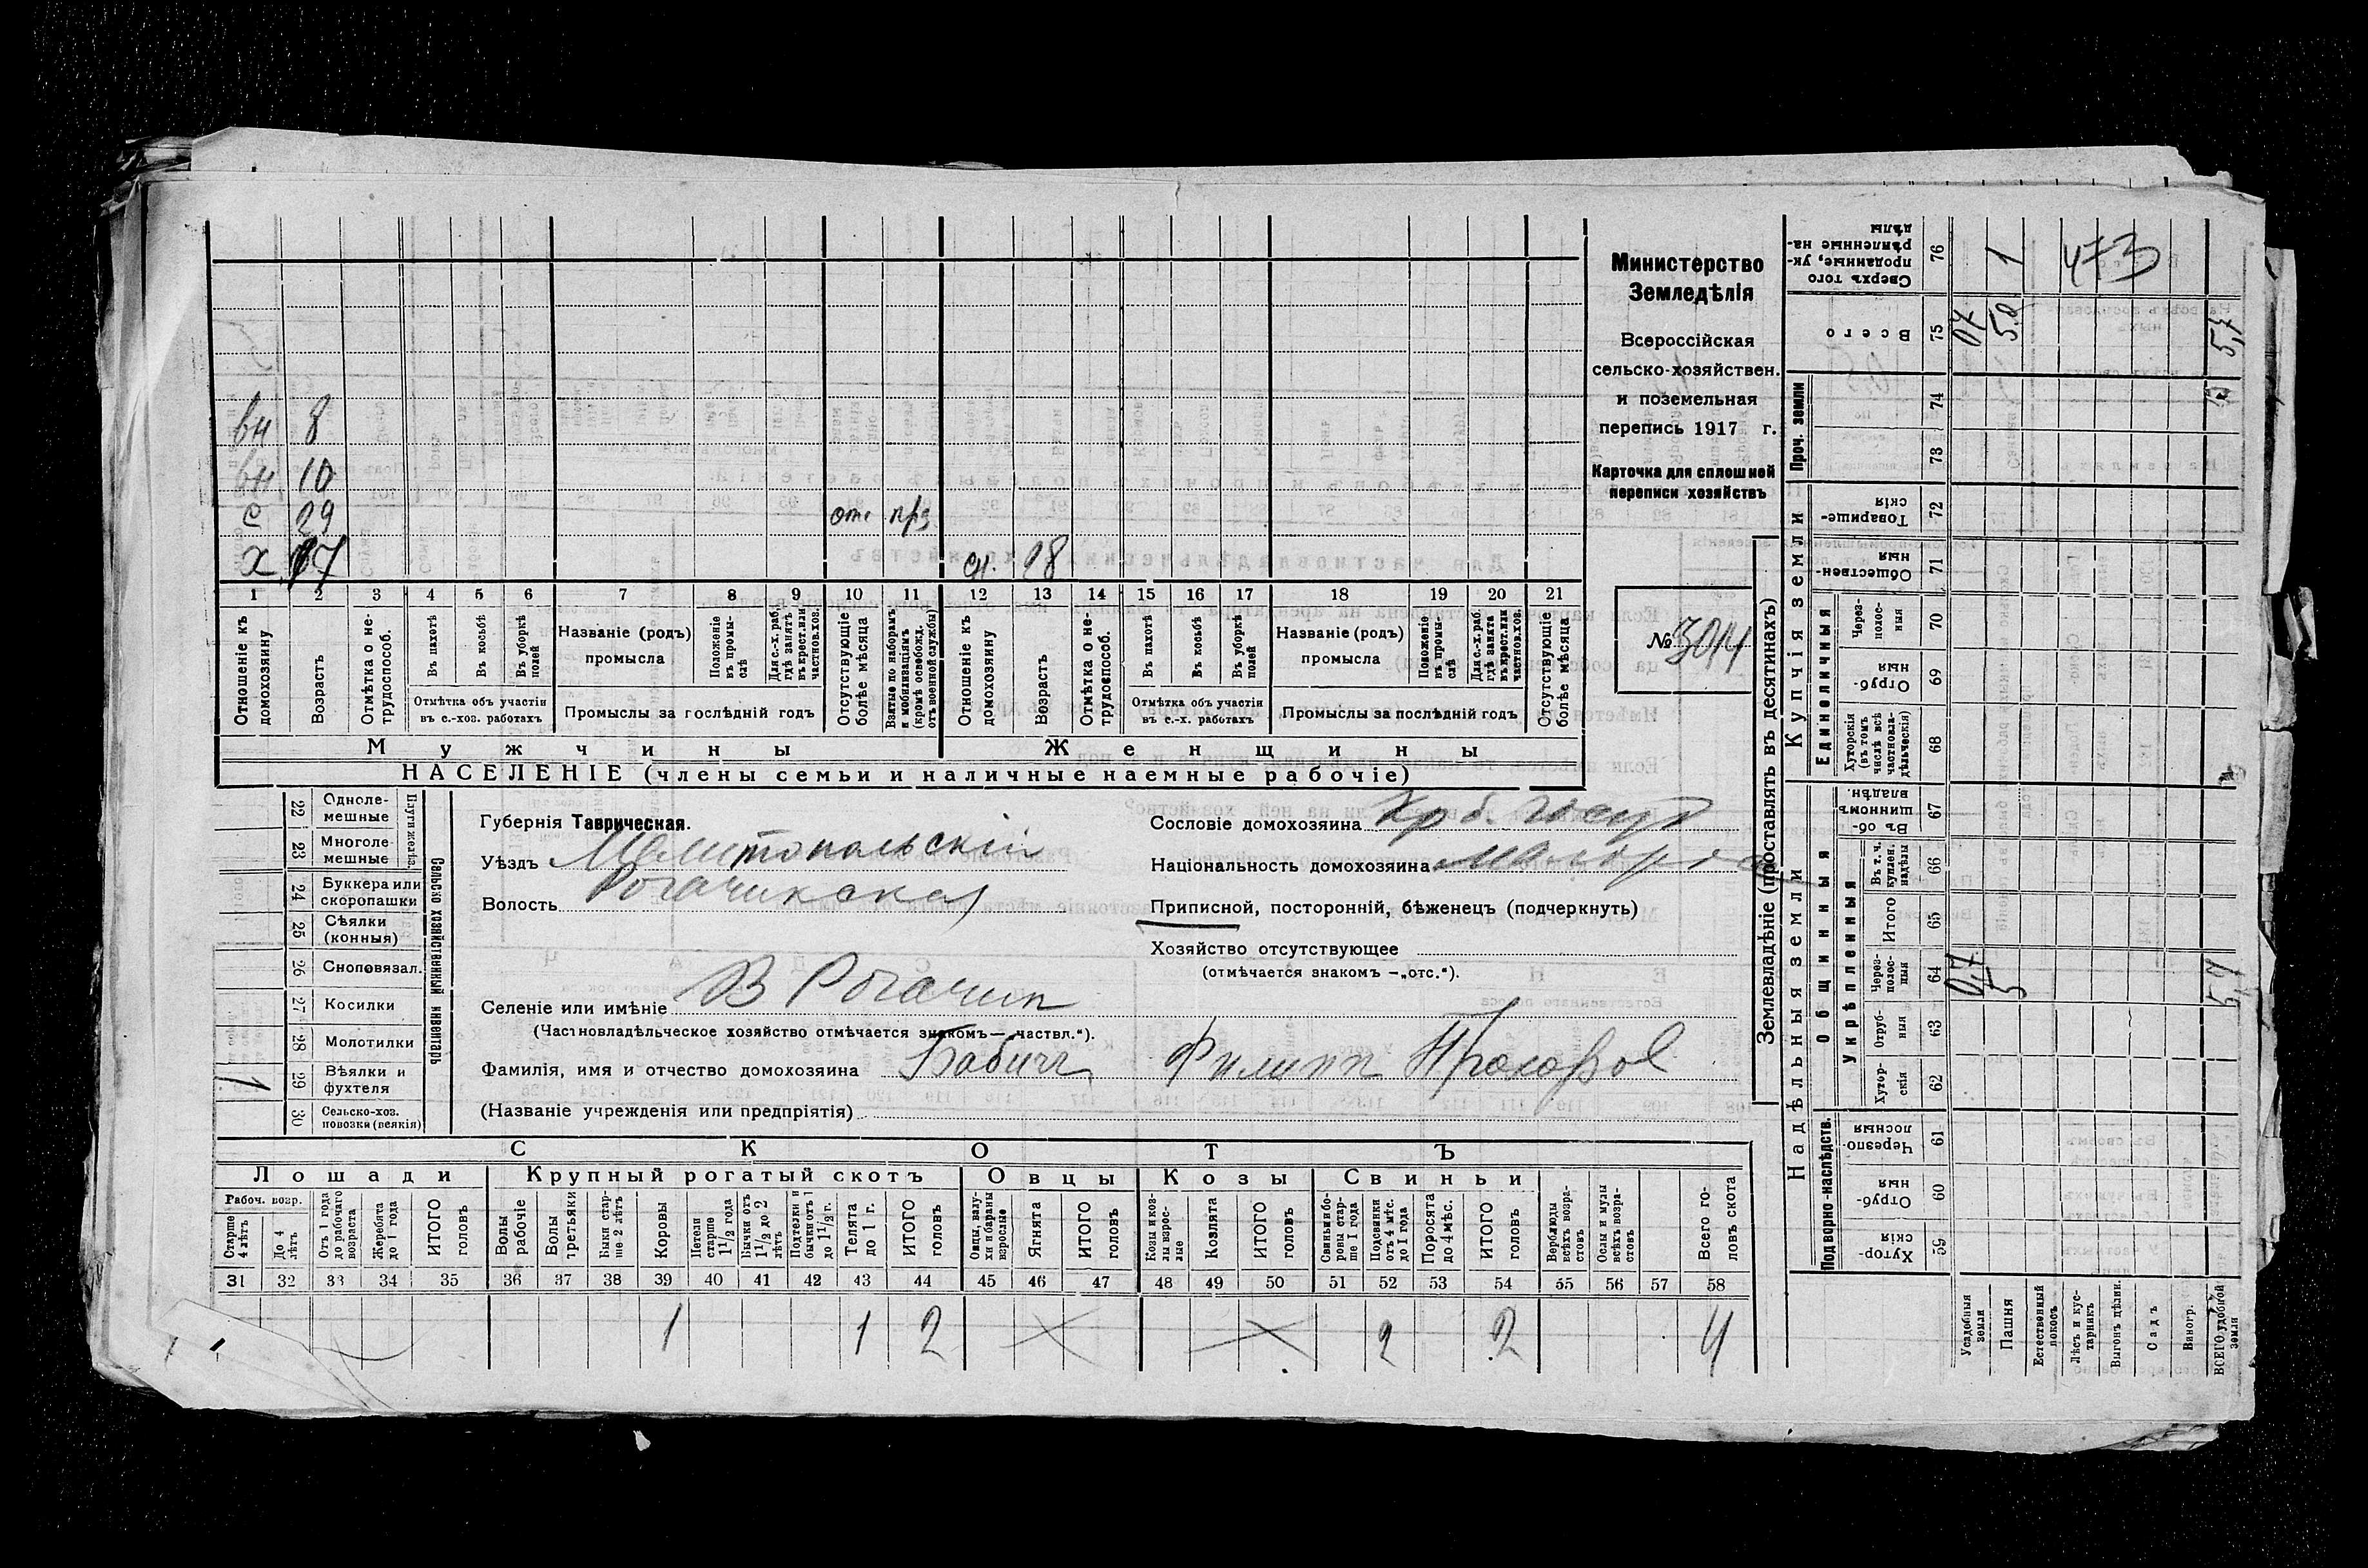 вн 8
вн 10
с 29 отс прз
х 67 сн. 28
1 2 3 4 5 6 7 8 9 10 11 12 13 14 15 16 17 18 19 20 21
Отношеніе къ домохозяину
Возрастъ
Отмѣтка о не-трудоспособ.
Въ пахотѣ
Въ косьбѣ
Въ уборкѣ полей
Отмѣтка объ участіи въ с.-хоз. работахъ
Названіе (родъ) промысла
Положеніе въ промы-слѣ
Для с.-х. раб. гдѣ занятъ въ крест. или частнов. хоз.
Промыслы за послѣдній годъ
Отсутствующіе болѣе мѣсяца
Взятые по наборамъ и мобилизаціямъ (кромѣ освобожд. отъ военной службы)
Отношеніе къ домохозяину
Возрастъ
Отмѣтка о не-трудоспособ.
Въ пахотѣ
Въ косьбѣ
Въ уборкѣ полей
Отмѣтка объ участіи въ с.-х. работахъ
Названіе (родъ) промысла
Положеніе въ промы-слѣ
Для с.-х. раб. гдѣ занята въ крест. или частнов. хоз.
Промыслы за послѣдній годъ
Отсутствующіе болѣе мѣсяца
Мужчины Женщины
НАСЕЛЕНІЕ (члены семьи и наличные наемные рабочіе)
Министерство
Земледѣлія
Всероссійская
сельско-хозяйствен.
и поземельная
перепись 1917 г.
Карточка для сплошной
переписи хозяйствъ
№ 3014
22 Одноле-мешные
23 Многоле-мешные
24 Буккера или скоропашки
25 Сѣялки (конныя)
26 Сноповязал.
27 Косилки
28 Молотилки
1 29 Вѣялки и фухтеля
30 Сельско-хоз. повозки (всякія)
Сельско хозяйственный инвентарь
Губернія Таврическая.
Уѣздъ Мелитопольскій
Волость Рогачикская
Селеніе или имѣніе В Рогачик
(Частновладѣльческое хозяйство отмѣчается знакомъ — „частвл.“).
Фамилія, имя и отчество домохозяина Бабич Филипп Прокофьев
(Названіе учрежденія или предпріятія)
Сословіе домохозяина
Національность домохозяина малоросс
Приписной, посторонній, бѣженецъ (подчеркнуть)
Хозяйство отсутствующее
(отмѣчается знакомъ —„отс.“).
СКОТЪ
Лошади Крупный рогатый скотъ Овцы Козы Свиньи
Рабоч. возр.
Старше 4 лѣтъ
До 4 лѣтъ
Отъ 1 года до рабочаго возраста
Жеребята до 1 года
ИТОГО головъ
Волы рабочіе
Волы третьяки
Быки стар-ше 2 лѣтъ
Коровы
Нетели старше 1 1/2 года
Бычки отъ 1 1/2 до 2 лѣтъ
Подтелки и бычки отъ 1 до 1 1/2 г.
Телята до 1 г.
ИТОГО головъ
Овцы, валу-хи и бараны взрослые
Ягнята
ИТОГО головъ
Козы и коз-лы взрос-лые
Козлята
ИТОГО головъ
Свиньи и бо-ровы стар-ше 1 года
Подсвинки отъ 4 мѣс. до 1 года
Поросята до 4 мѣс.
ИТОГО головъ
Верблюды всѣхъ возра-стовъ
Ослы и мулы всѣхъ возра-стовъ
Всего го-ловъ скота
31 32 33 34 35 36 37 38 39 40 41 42 43 44 45 46 47 48 49 50 51 52 53 54 55 56 57 58
1 1 2 2 2 4
Землевладѣніе (проставлять въ десятинахъ)
Надѣльныя земли
Купчія земли
Проч. земли
Подворно-наслѣдств.
Общинныя
Укрѣпленныя
Единоличныя
Сверхъ того проданные, ук-рѣпленные на-дѣлы 76 1 473
Всего 75 07 5,0 5,7
74
73
Товарище-скія 72
Обществен-ныя 71
Черезполос-ныя 70
Отруб-ныя 69
Хуторскія (въ томъ числѣ всѣ частновла-дѣльческія) 68
Въ об-щинномъ владѣн. 67
Въ т. ч. куплен. надѣлы 66
Итого 65
Через-полос-ныя 64 0,7 5 5,7
Отруб-ныя 63
Хутор-скія 62
Черезпо-лосныя 61
Отруб-ныя 60
Хутор-скія 59
Усадебныя земли
Пашня
Естественный покосъ
Лѣсъ и кус-тарникъ
Выгонъ цѣлин.
Садъ
Виногр.
ВСЕГО удобной земли